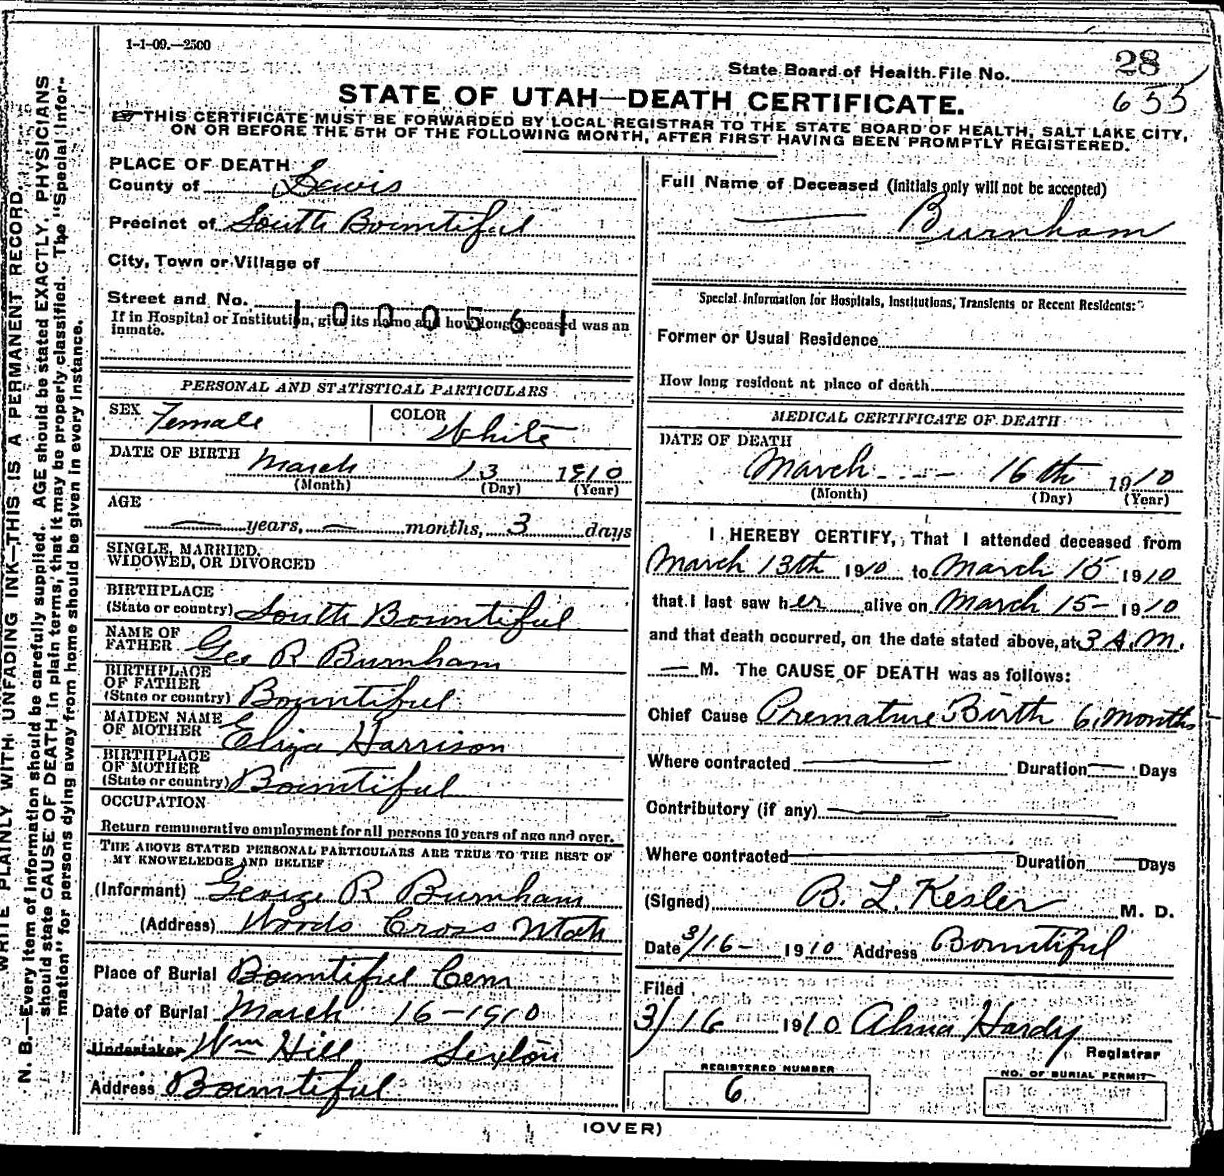 1-1-09.—2500
State Board of Health File No. 28
655
STATE OF UTAH—DEATH CERTIFICATE.
THIS CERTIFICATE MUST BE FORWARDED BY LOCAL REGISTRAR TO THE STATE BOARD OF HEALTH, SALT LAKE CITY,
ON OR BEFORE THE 5TH OF THE FOLLOWING MONTH, AFTER FIRST HAVING BEEN PROMPTLY REGISTERED.
PLACE OF DEATH
County of Davis
Precinct of South Bountiful
City, Town or Village of
Street and No.
1000561
If in Hospital or Institution, give its name and how long deceased was an
inmate.
PERSONAL AND STATISTICAL PARTICULARS
SEX Female COLOR White
DATE OF BIRTH March 13 1910
(Month) (Day) (Year)
AGE
— years, — months, 3 days
SINGLE, MARRIED,
WIDOWED, OR DIVORCED
BIRTHPLACE
(State or country) South Bountiful
NAME OF
FATHER Geo R Burnham
BIRTHPLACE
OF FATHER
(State or country) Bountiful
MAIDEN NAME
OF MOTHER Eliza Harrison
BIRTHPLACE
OF MOTHER
(State or country) Bountiful
OCCUPATION
Return remunerative employment for all persons 10 years of age and over.
THE ABOVE STATED PERSONAL PARTICULARS ARE TRUE TO THE BEST OF
MY KNOWLEDGE AND BELIEF
(Informant) George R Burnham
(Address) Woods Cross Utah
Place of Burial Bountiful Cem
Date of Burial March 16-1910
Undertaker Wm Hill Sexton
Address Bountiful
Full Name of Deceased (Initials only will not be accepted)
— Burnham
Special Information for Hospitals, Institutions, Transients or Recent Residents:
Former or Usual Residence
How long resident at place of death
MEDICAL CERTIFICATE OF DEATH
DATE OF DEATH
March - - - 16th 1910
(Month) (Day) (Year)
I HEREBY CERTIFY, That I attended deceased from
March 13th 1910 to March 15 1910
that I last saw her alive on March 15- 1910
and that death occurred, on the date stated above, at 3 A.M.
— M. The CAUSE OF DEATH was as follows:
Chief Cause Premature Birth 6 months
Where contracted — Duration — Days
Contributory (if any) —
Where contracted — Duration — Days
(Signed) B. L. Kesler M. D.
Date 3/16- 1910 Address Bountiful
Filed
3/16 1910 Alma Hardy
Registrar
REGISTERED NUMBER
6
NO. OF BURIAL PERMIT
(OVER)
WRITE PLAINLY WITH UNFADING INK—THIS IS A PERMANENT RECORD.
N. B.—Every item of information should be carefully supplied. AGE should be stated EXACTLY. PHYSICIANS
should state CAUSE OF DEATH in plain terms, that it may be properly classified. The "Special Infor-
mation" for persons dying away from home should be given in every instance.